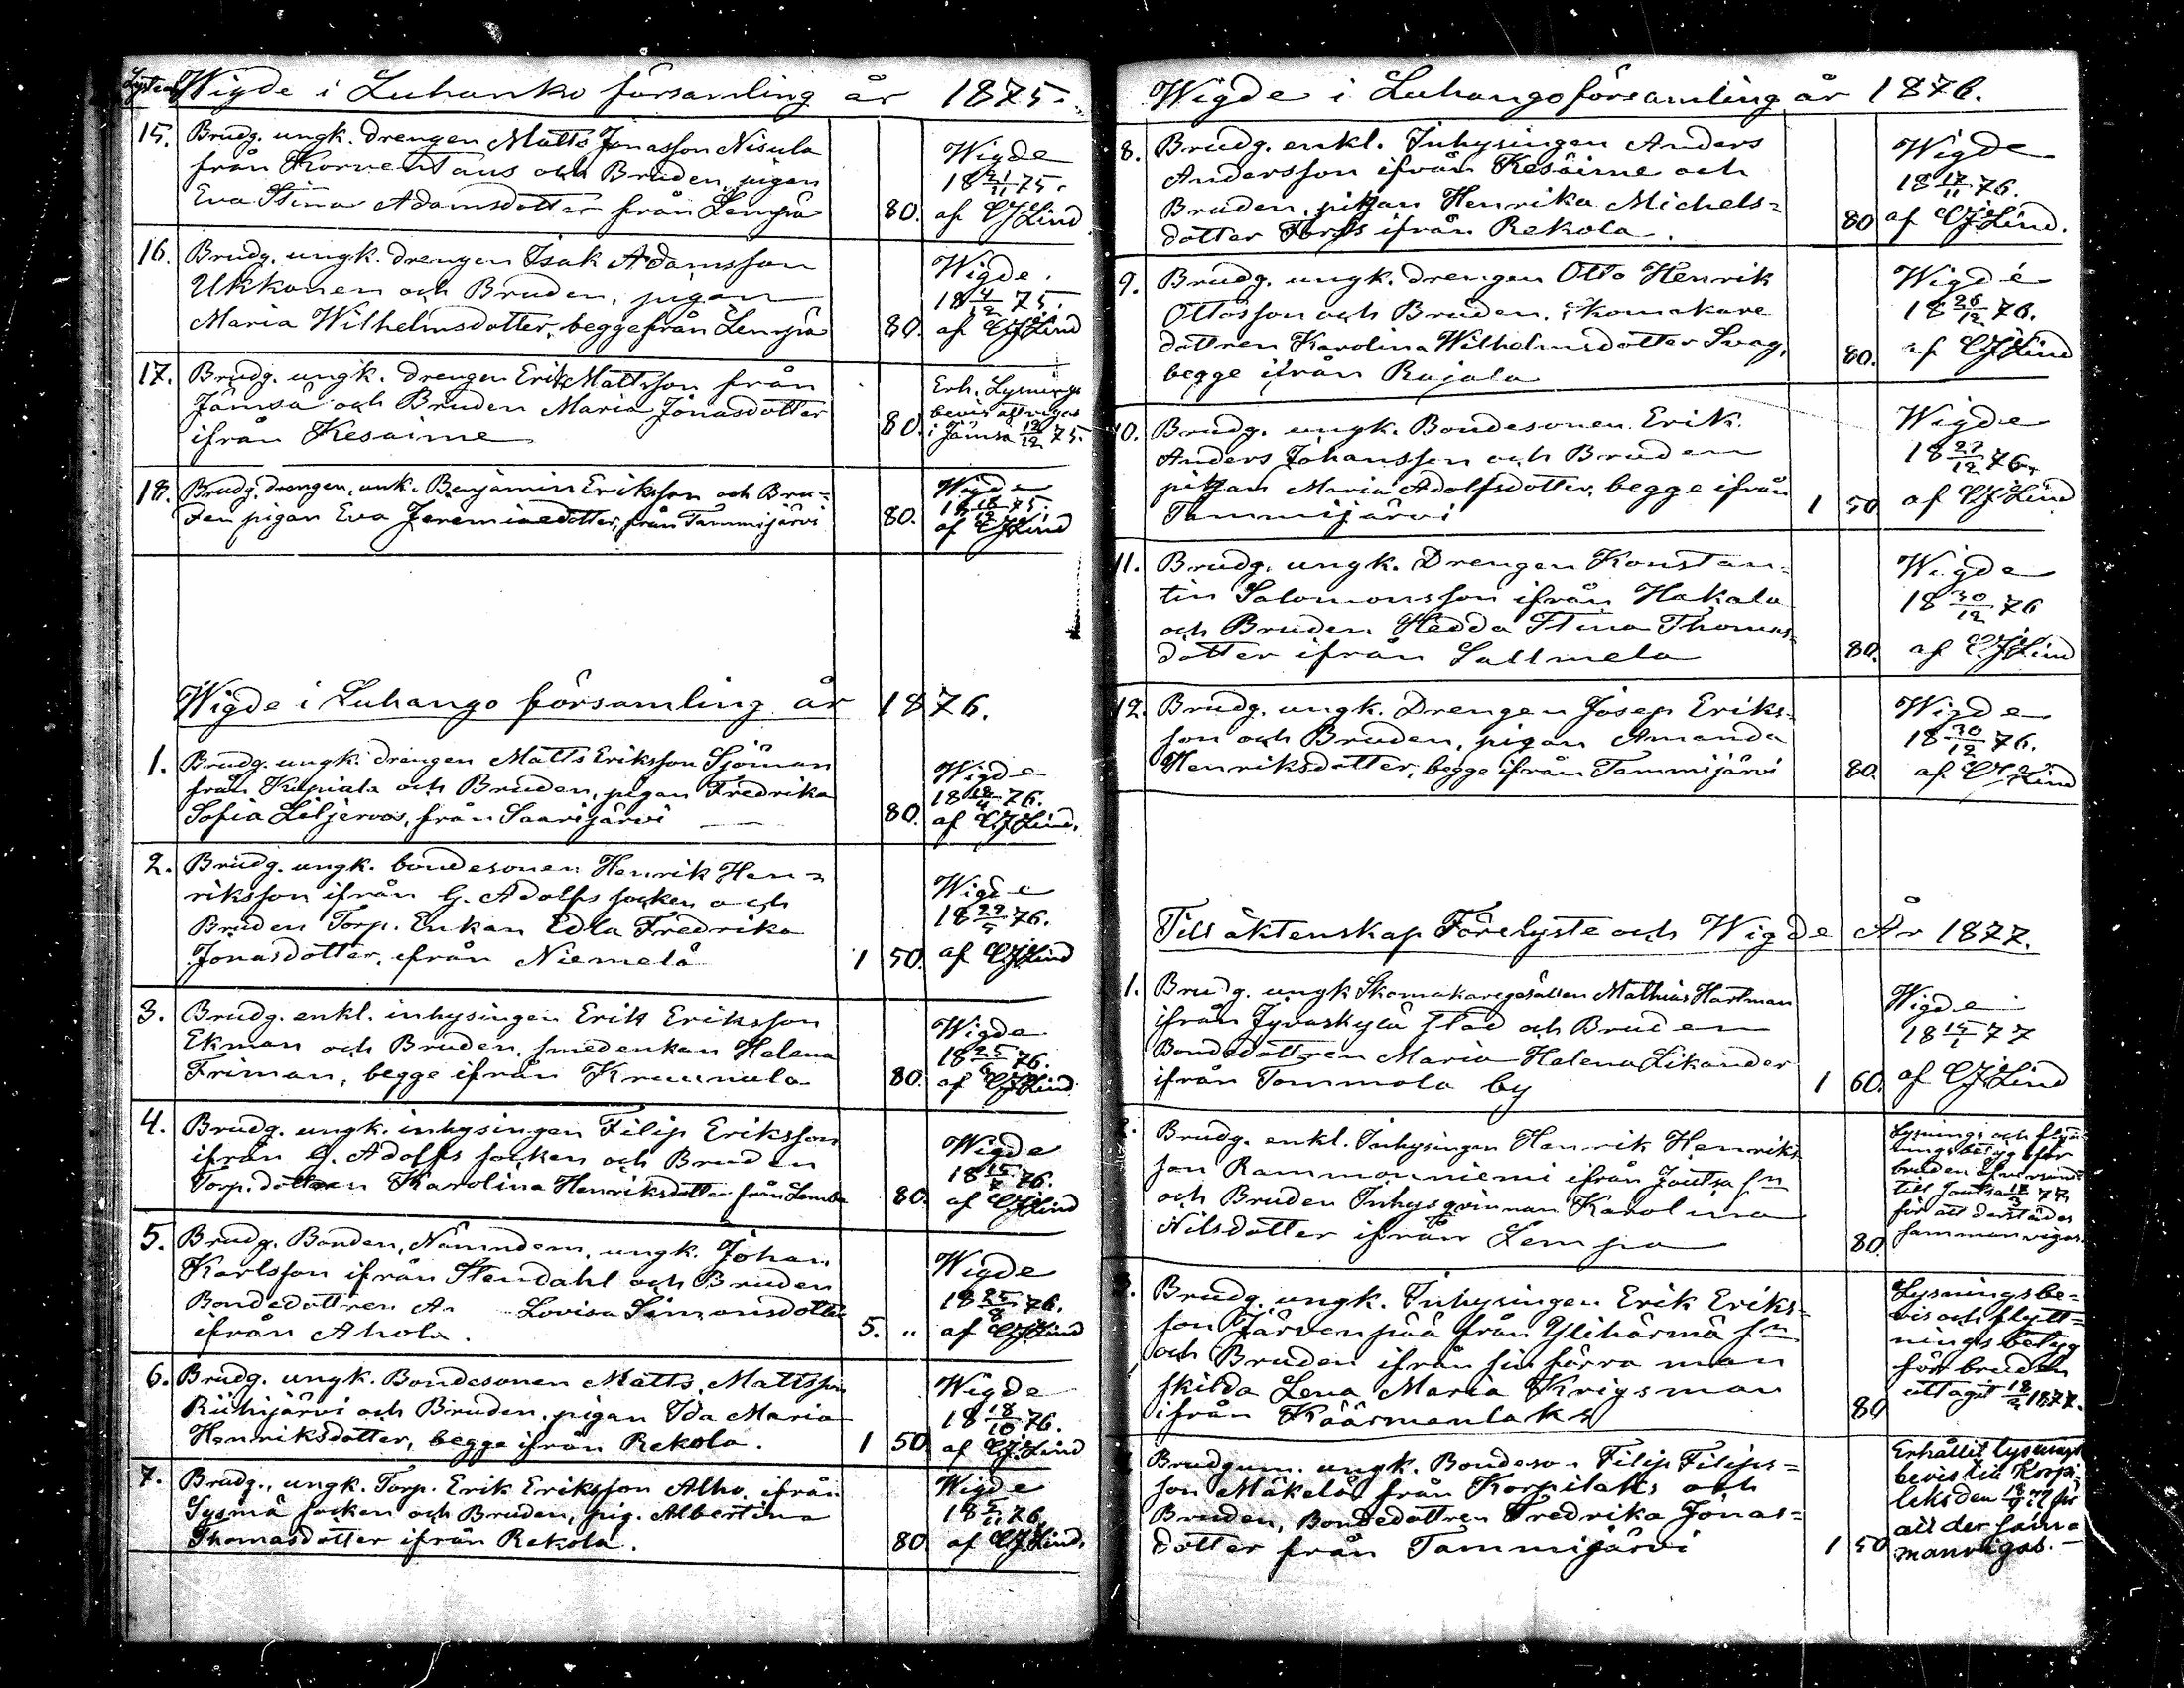 Wigde i Luhanko församling år 1875.
15. Brudg. ungk. drengen Matts Jonasson Nisula
från Korvent aus och Bruden, pigan
Eva Stina Adamsdotter från Lempä
80.
Wigde
18 21/11 75.
af CJLind
16. Brudg. ungk. drengen Isak Adamsson
Ukkonen och Bruden, pigan
Maria Wilhelmsdotter, begge från Lempä
80.
Wigde.
18 4/12 75.
af CJLind
17. Brudg. ungk. drengen Erik Mattsson från
Jämsä och Bruden Maria Jonasdotter
ifrån Kesaime
80.
Erh. Lysnings
bevis att vigas
i Jämsä 12/12 75.
18. Brudg. drengen, unk. Benjamin Eriksson och Bru-
den pigan Eva Jeremiaedotter, från Tammijärvi
80.
Wigde
18 18/12 75.
af CJLind
Wigde i Luhango församling år 1876.
1. Brudg. ungk. drengen Matts Eriksson Sjöman
från Kupiala och Bruden, pigan Fredrika
Sofia Liljeroos, från Saarijärvi
80.
Wigde
18 18/4 76.
af CJLind.
2. Brudg. ungk. bondesonen Henrik Hen=
riksson ifrån G. Adolfs socken och
Bruden Torp. Enkan Edla Fredrika
Jonasdotter, ifrån Niemelä
1 50.
Wigde
18 22/5 76.
af CJLind
3. Brudg. enkl. inhysingen Erik Eriksson
Ekman och Bruden, smedenkan Helena
Friman, begge ifrån Kruunula
80.
Wigde
18 25/6 76.
af CJLind
4. Brudg. ungk. inhysingen Filip Eriksson
ifrån G. Adolfs socken och Bruden
Torp. dottren Karolina Henriksdotter från
80.
Wigde
18 15/7 76.
af CJLind
5. Brudg. Bonden, Nämndem. ungk. Johan
Karlsson ifrån Stendahl och Bruden
Bondedottren Lovisa Simonsdotter
ifrån Ahola.
5. "
Wigde
18 25/8 76.
af CJLind
6. Brudg. ungk. Bondesonen Matts Mattsson
Riihijärvi och Bruden, pigan Ida Maria
Henriksdotter, begge ifrån Rekola.
1 50
Wigde
18 18/10 76.
af CJLind
7. Brudg., ungk. Torp. Erik Eriksson Alho, ifrån
Sysmä socken och Bruden, pig. Albertina
Thomasdotter ifrån Rekola.
80.
Wigde
18 5/11 76.
af CJLind.
Wigde i Luhango församling år 1876.
8. Brudg. enkl. Inhysingen Anders
Andersson ifrån Kesäime och
Bruden, pigan Henrika Michels=
dotter Fors ifrån Rekola.
80
Wigde
18 17/11 76.
af CJLind.
9. Brudg. ungk. drengen Otto Henrik
Ottosson och Bruden, skomakare
dottren Karolina Wilhelmsdotter Svag,
begge ifrån Rajala
80.
Wigde
18 26/12 76.
af CJLind
10. Brudg. ungk. Bondesonen Erik
Anders Johansson och Bruden
pigan Maria Adolfsdotter, begge ifrån
Tammijärvi
1 50
Wigde
18 27/12 76.
af CJLind
11. Brudg. ungk. Drengen Konstan=
tin Salomonsson ifrån Hakala
och Bruden Hedda Stina Thomas=
dotter ifrån Sallmela
80.
Wigde
18 30/12 76
af CJLind
12. Brudg. ungk. Drengen Josep Eriks=
son och Bruden, pigan Amanda
Henriksdotter, begge ifrån Tammijärvi
80.
Wigde
18 30/12 76.
af CJLind
Till äktenskap Förelyste och Wigde År 1877.
1. Brudg. ungk Skomakaregesällen Mathias Hartman
ifrån Jyväskylä stad och Bruden
Bondedottren Maria Helena Likander
ifrån Tommola by
1 60.
Wigde
18 15/1 77
af CJLind
2. Brudg. enkl. Inhysingen Henrik Henriks
son Rammonniemi ifrån Joutsa sn
och Bruden Inhysqvinnan Karolina
Nilsdotter ifrån Lempa
80.
Lysnings och flytt-
nings betyg öfver
bruden
till Joutsa 77
för att derstädes
sammanvigas.
3. Brudg. ungk. Inhysingen Erik Eriks=
son Järvenpää från Ylihärmä sn
och Bruden ifrån sin förra man
skilda Lena Maria Krigsman
ifrån Käärmenlaks
80
Lysningsbe=
vis och flytt=
nings betyg
för bruden
uttagit 18/2 1877.
4. Brudgum. ungk. Bondeson Filip Filips=
son Mäkelä från Korpilaks och
Bruden, Bondedottren Fredrika Jonas=
dotter från Tammijärvi
1 50
Erhållit lysnings
bevis till Korpi-
laks den 77 för
att der sam-
manvigas.